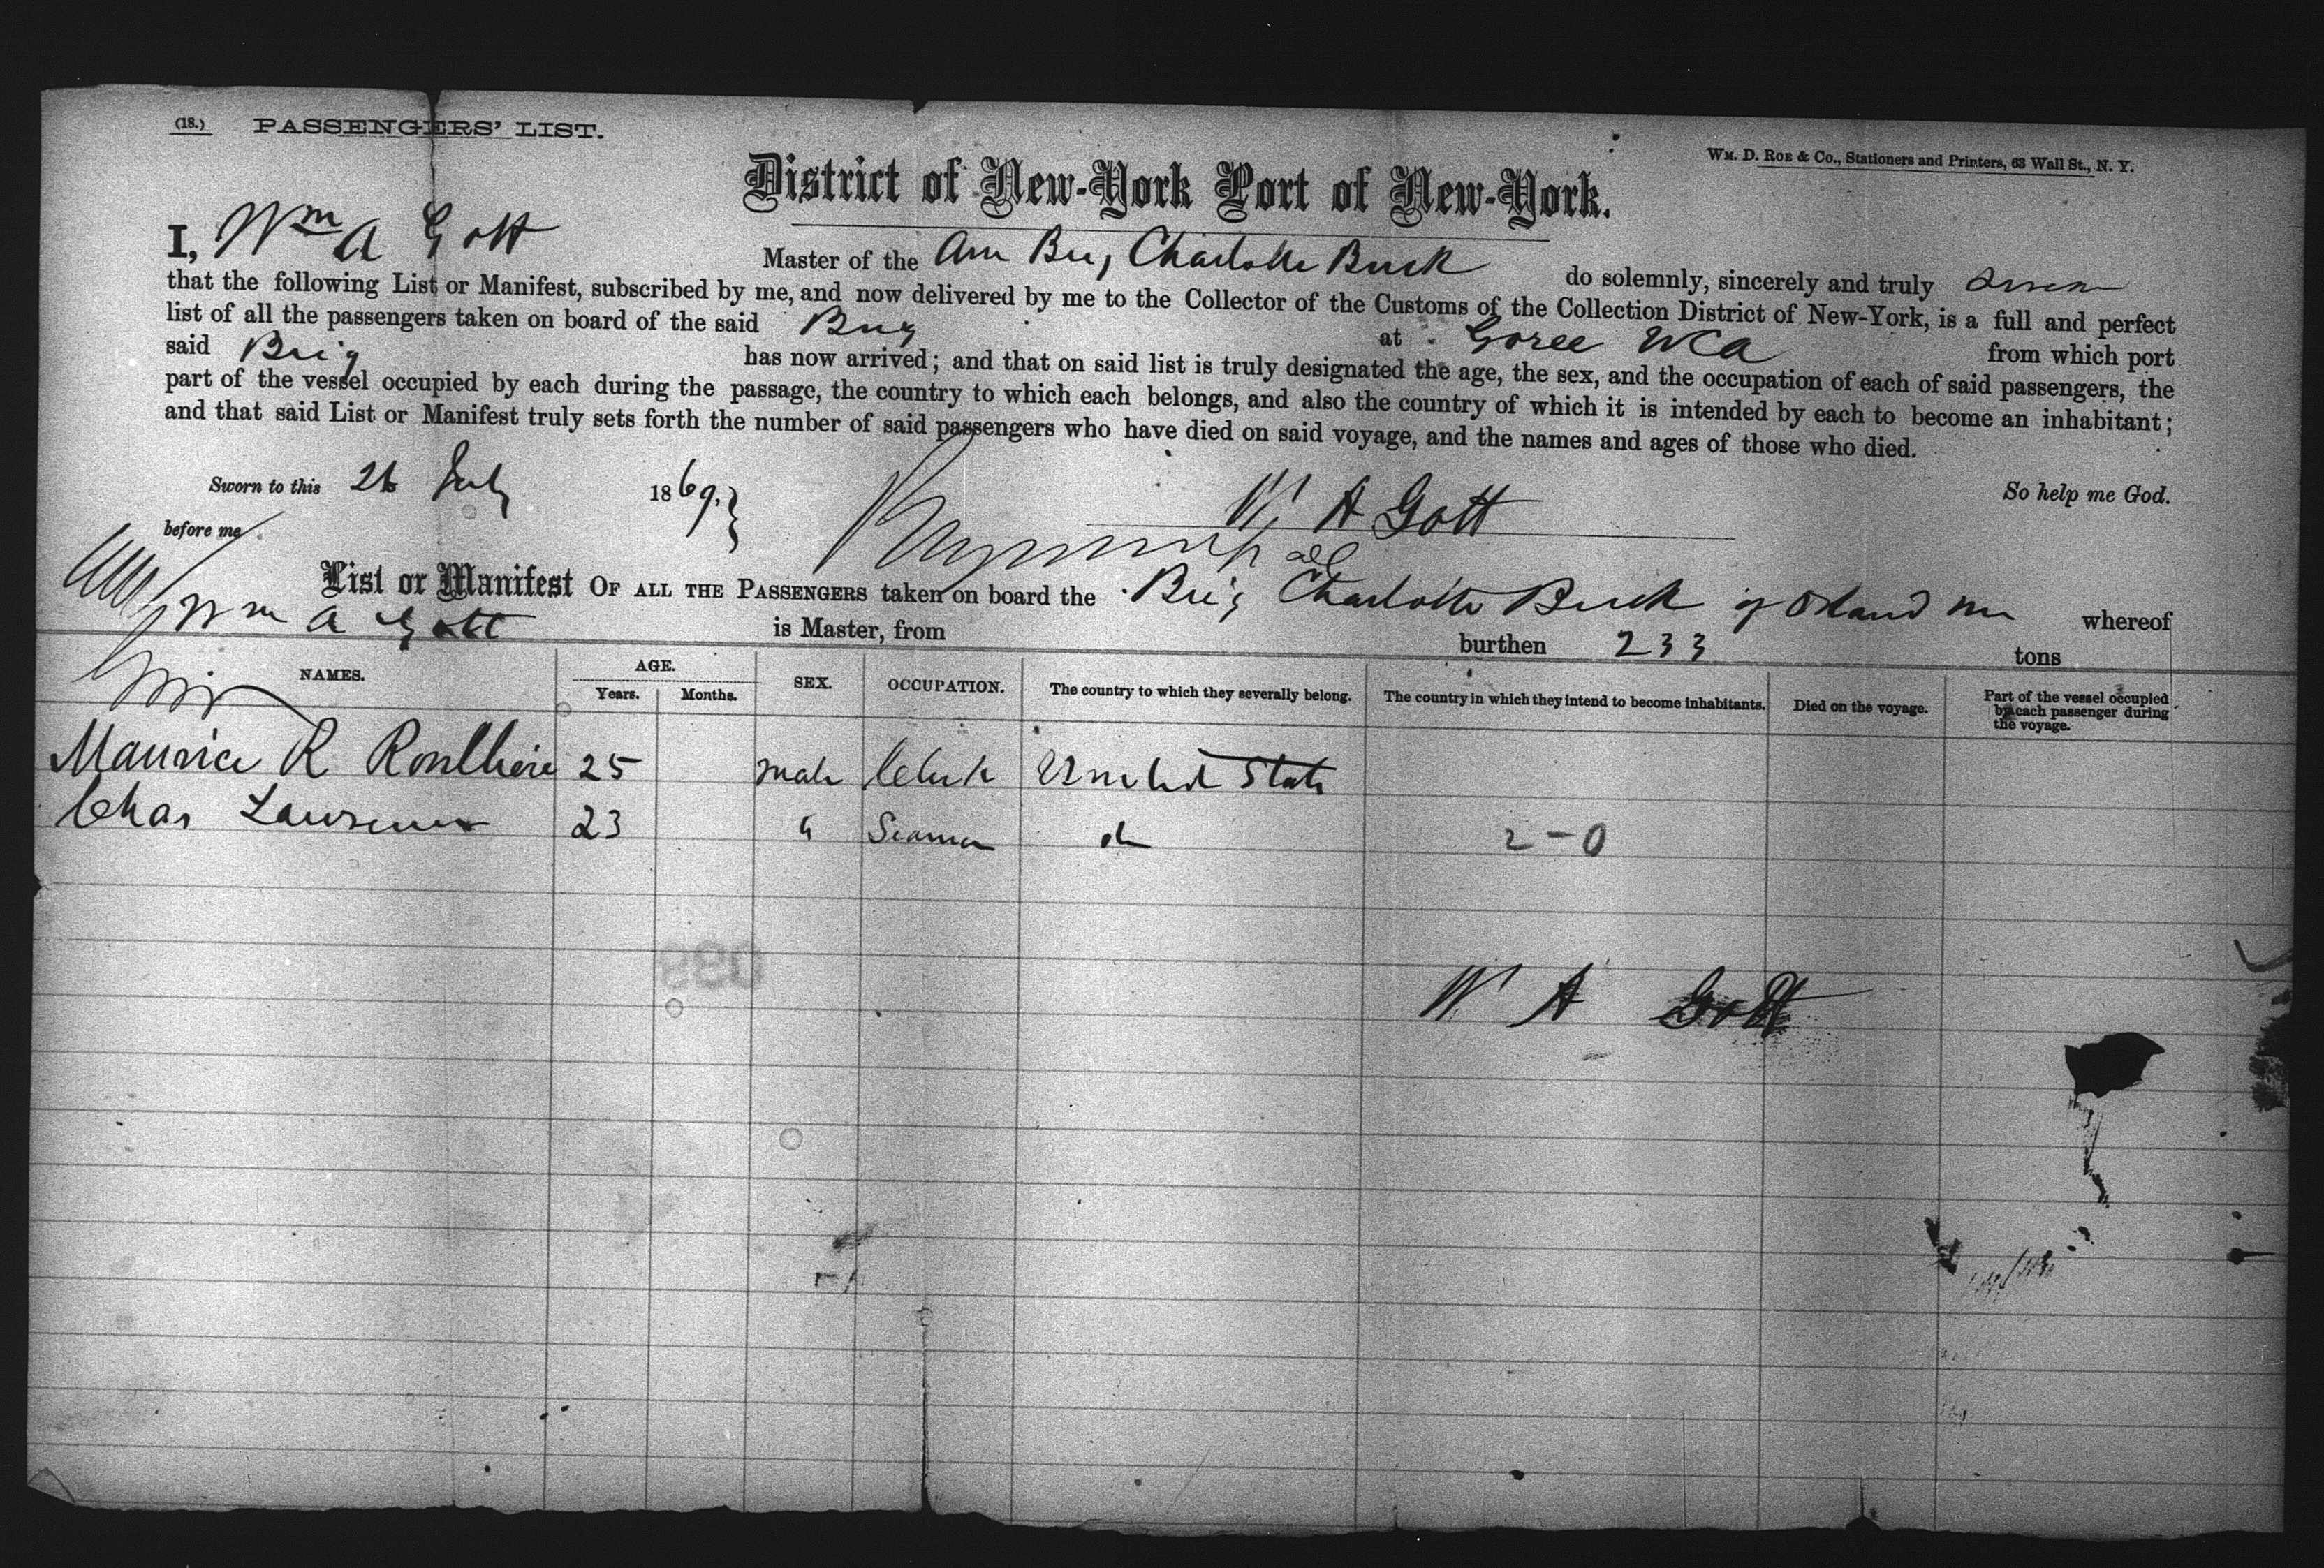 (18.) PASSENGERS' LIST.
WM. D. ROE & Co., Stationers and Printers, 63 Wall St., N. Y.
District of New-York Port of New-York.
I, Wm A Gott Master of the Am Brig Charlotte Buck do solemnly, sincerely and truly
that the following List or Manifest, subscribed by me, and now delivered by me to the Collector of the Customs of the Collection District of New-York, is a full and perfect
list of all the passengers taken on board of the said Brig at Goree WCA from which port
said Brig has now arrived; and that on said list is truly designated the age, the sex, and the occupation of each of said passengers, the
part of the vessel occupied by each during the passage, the country to which each belongs, and also the country of which it is intended by each to become an inhabitant;
and that said List or Manifest truly sets forth the number of said passengers who have died on said voyage, and the names and ages of those who died.
Sworn to this 26 July 1869. So help me God.
W A Gott
before me
List or Manifest OF ALL THE PASSENGERS taken on board the Brig Charlotte Buck of Orland Me whereof
Wm A Gott is Master, from burthen 233 tons
NAMES. AGE. Years. Months. SEX. OCCUPATION. The country to which they severally belong. The country in which they intend to become inhabitants. Died on the voyage. Part of the vessel occupied by each passenger during the voyage.
Maurice R 25 male Clerk United States
Chas Lawrence 23 " Seaman do 2-0
W A Gott